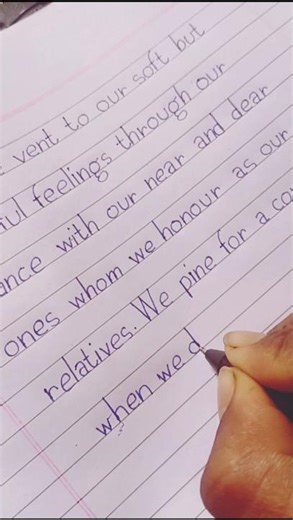 vent to our soft but
feelings through our
with our near and dear
ones whom we honour as our
relatives. We pine for a
when we d